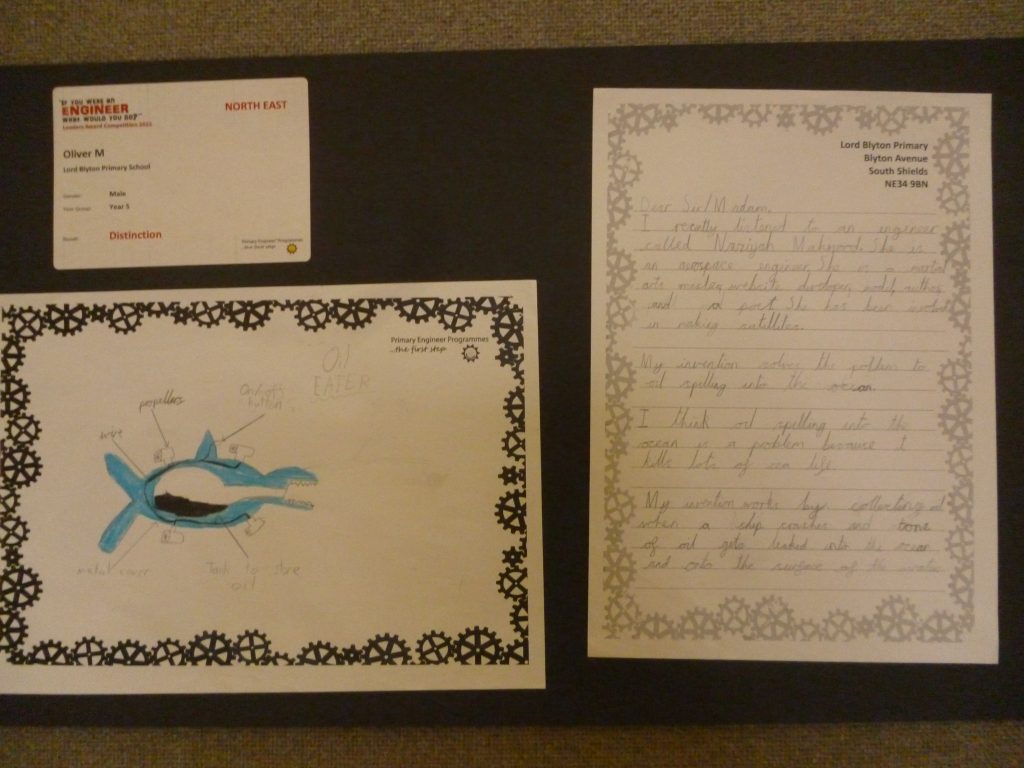 "IF YOU WERE AN
ENGINEER
WHAT WOULD YOU DO?"
Leaders Award Competition
NORTH EAST
Oliver M
Lord Blyton Primary School
Gender: Male
Year Group: Year 5
Result: Distinction
Primary Engineer Programmes
...the first step
Primary Engineer Programmes
...the first step
Oil
EATER
On/off
button
propellers
wire
metal cover
Tank to store
oil
Lord Blyton Primary
Blyton Avenue
South Shields
NE34 9BN
Dear Sir/Madam,
I recently listened to an engineer
called Mahmood. She is
an aerospace engineer. She is a martial
arts master, website developer, model, author
and a poet. She has been involved
in making satillites.
My invention solves the poblem to
oil spilling into the ocean.
I think oil spilling into the
ocean is a problem because it
kills lots of sea life.
My invention works by collecting oil
when a ship crashes and tone
of oil gets leaked into the ocean
and onto the surface of the water.